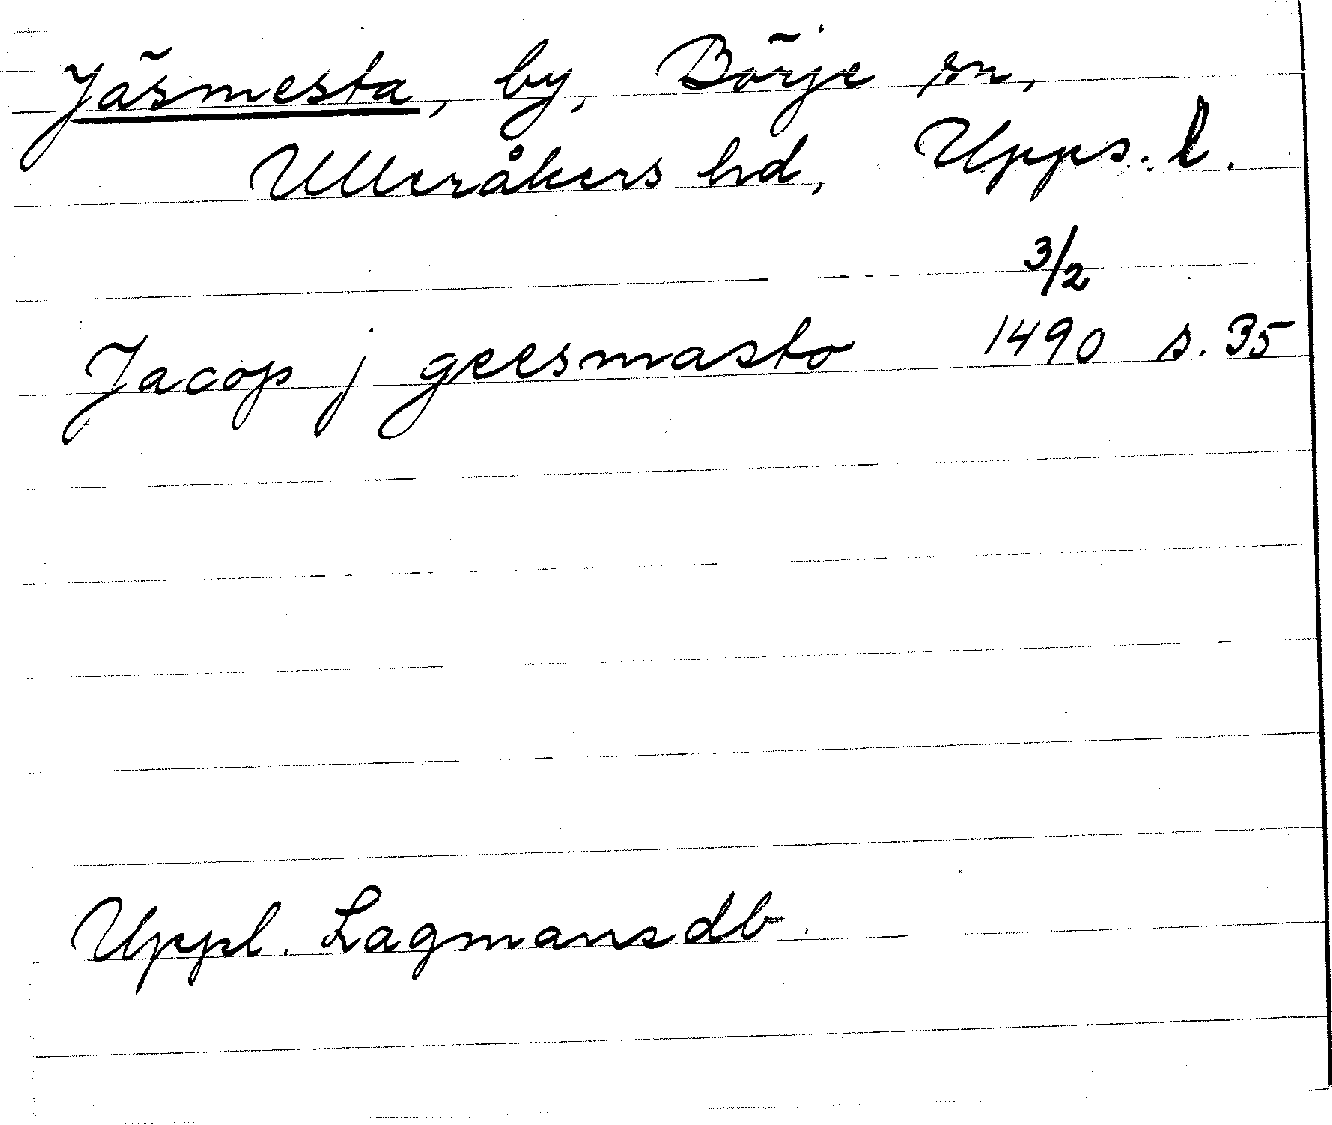 Jäsmesta, by, Börje sn,
Ulleråkers hd, Upps. l.
3/2
Jacop j geesmasto 1490 s. 35
Uppl. Lagmansdb.